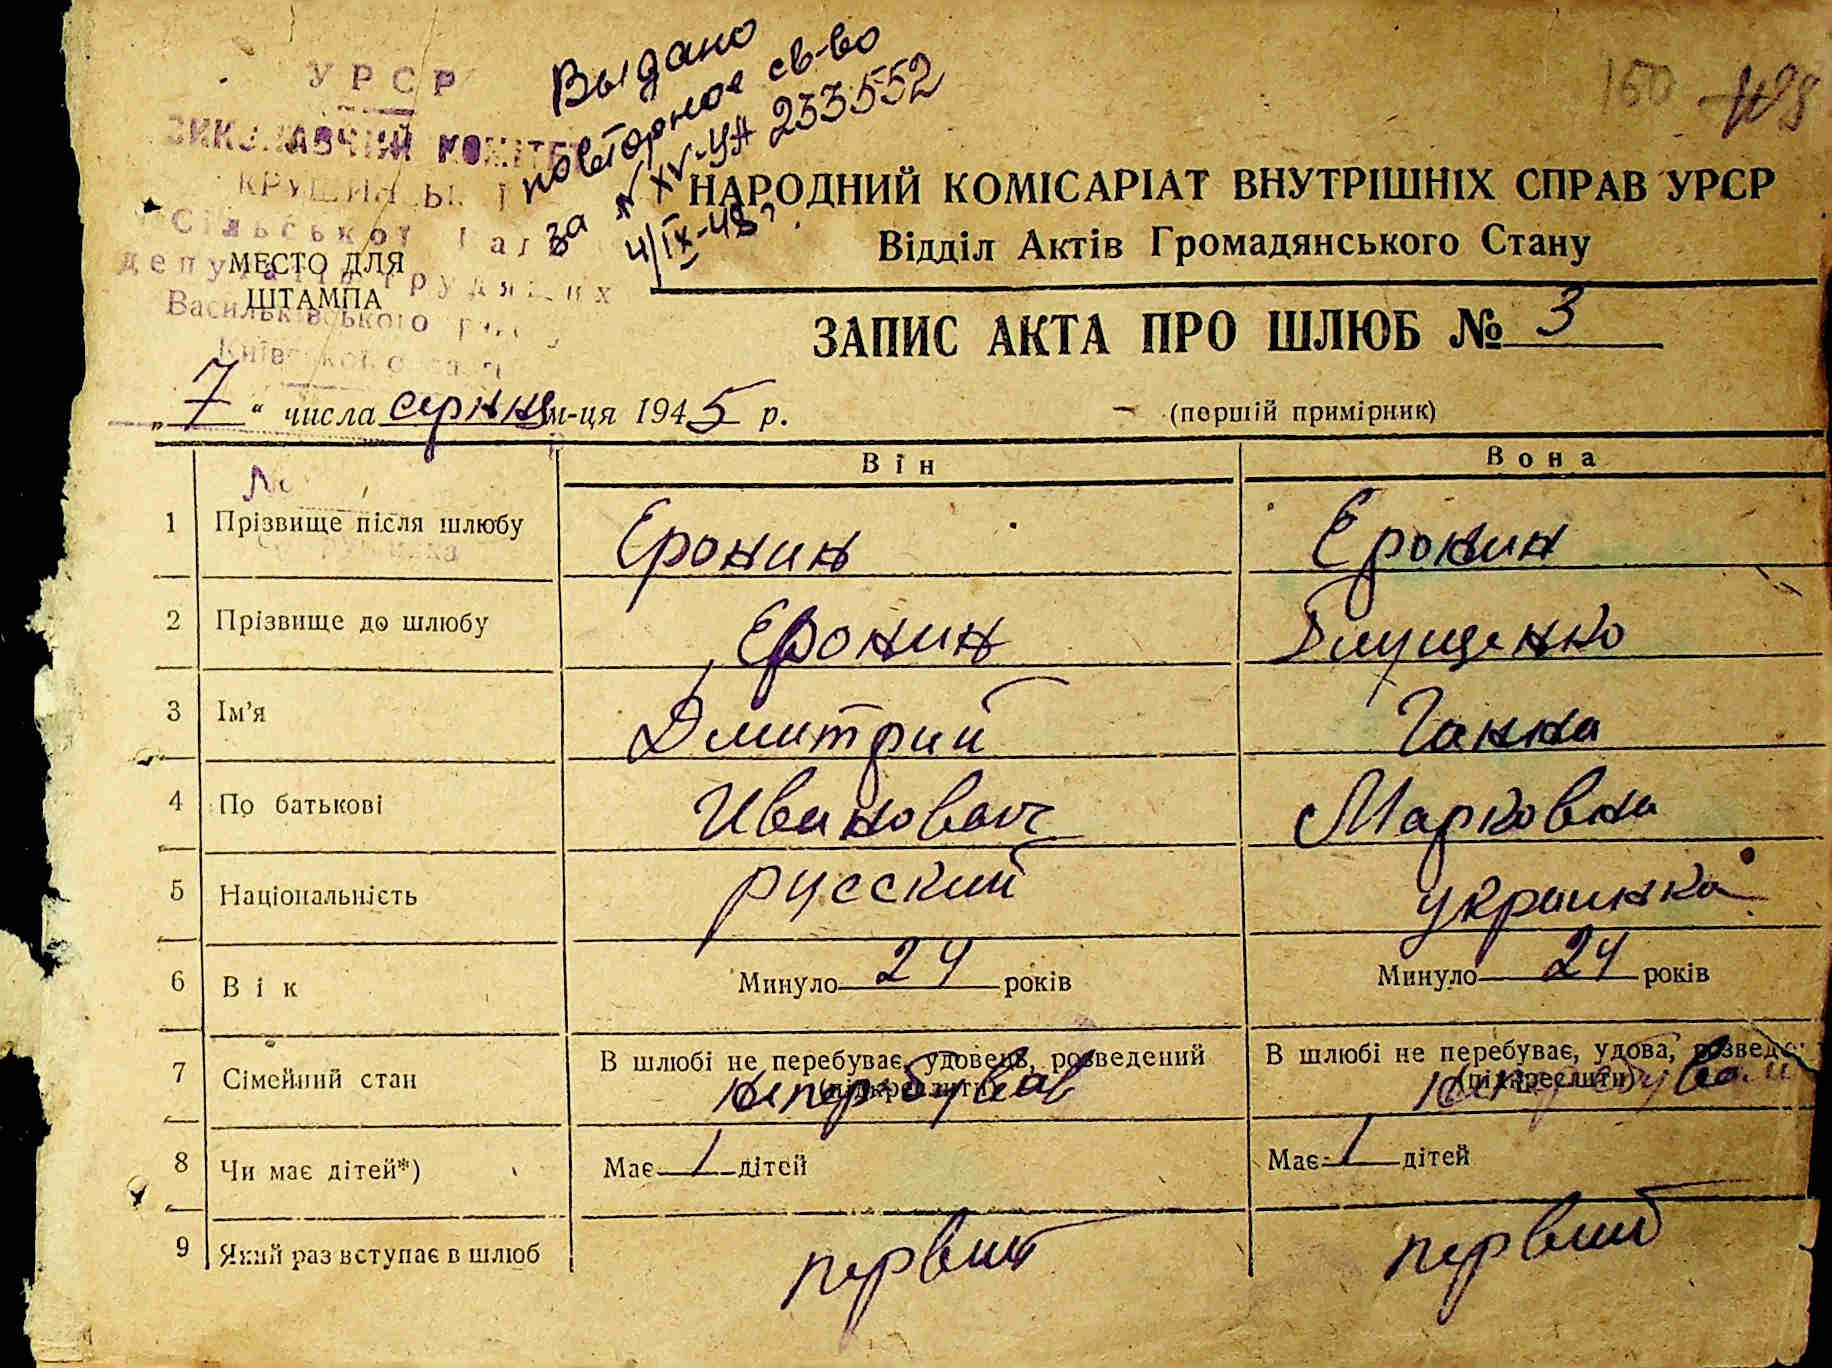 УРСР
ВИКОНАВЧИЙ КОМІТЕТ
Сільської Ради
депутатів трудящих
Васильківського р
Київської області
МЕСТО ДЛЯ
ШТАМПА
Выдано
повторное св-во
за № XV-УА 233552
4/IX-48
150
НАРОДНИЙ КОМІСАРІАТ ВНУТРІШНІХ СПРАВ УРСР
Відділ Актів Громадянського Стану
ЗАПИС АКТА ПРО ШЛЮБ № 3
„7“ числа серпня м-ця 1945 р.
(першій примірник)
Він Вона
1 Прізвище після шлюбу Еронин Еронин
2 Прізвище до шлюбу Еронин
3 Ім'я Дмитрий Ганна
4 По батькові Иванович Марковна
5 Національність русский украинка
6 Вік Минуло 24 років Минуло 24 років
7 Сімейний стан В шлюбі не перебуває, удовець, розведений (підкреслити) В шлюбі не перебуває, удова, розведе (підкреслити)
неперебував
8 Чи має дітей*) Має 1 дітей Має 1 дітей
9 Який раз вступає в шлюб первий первий